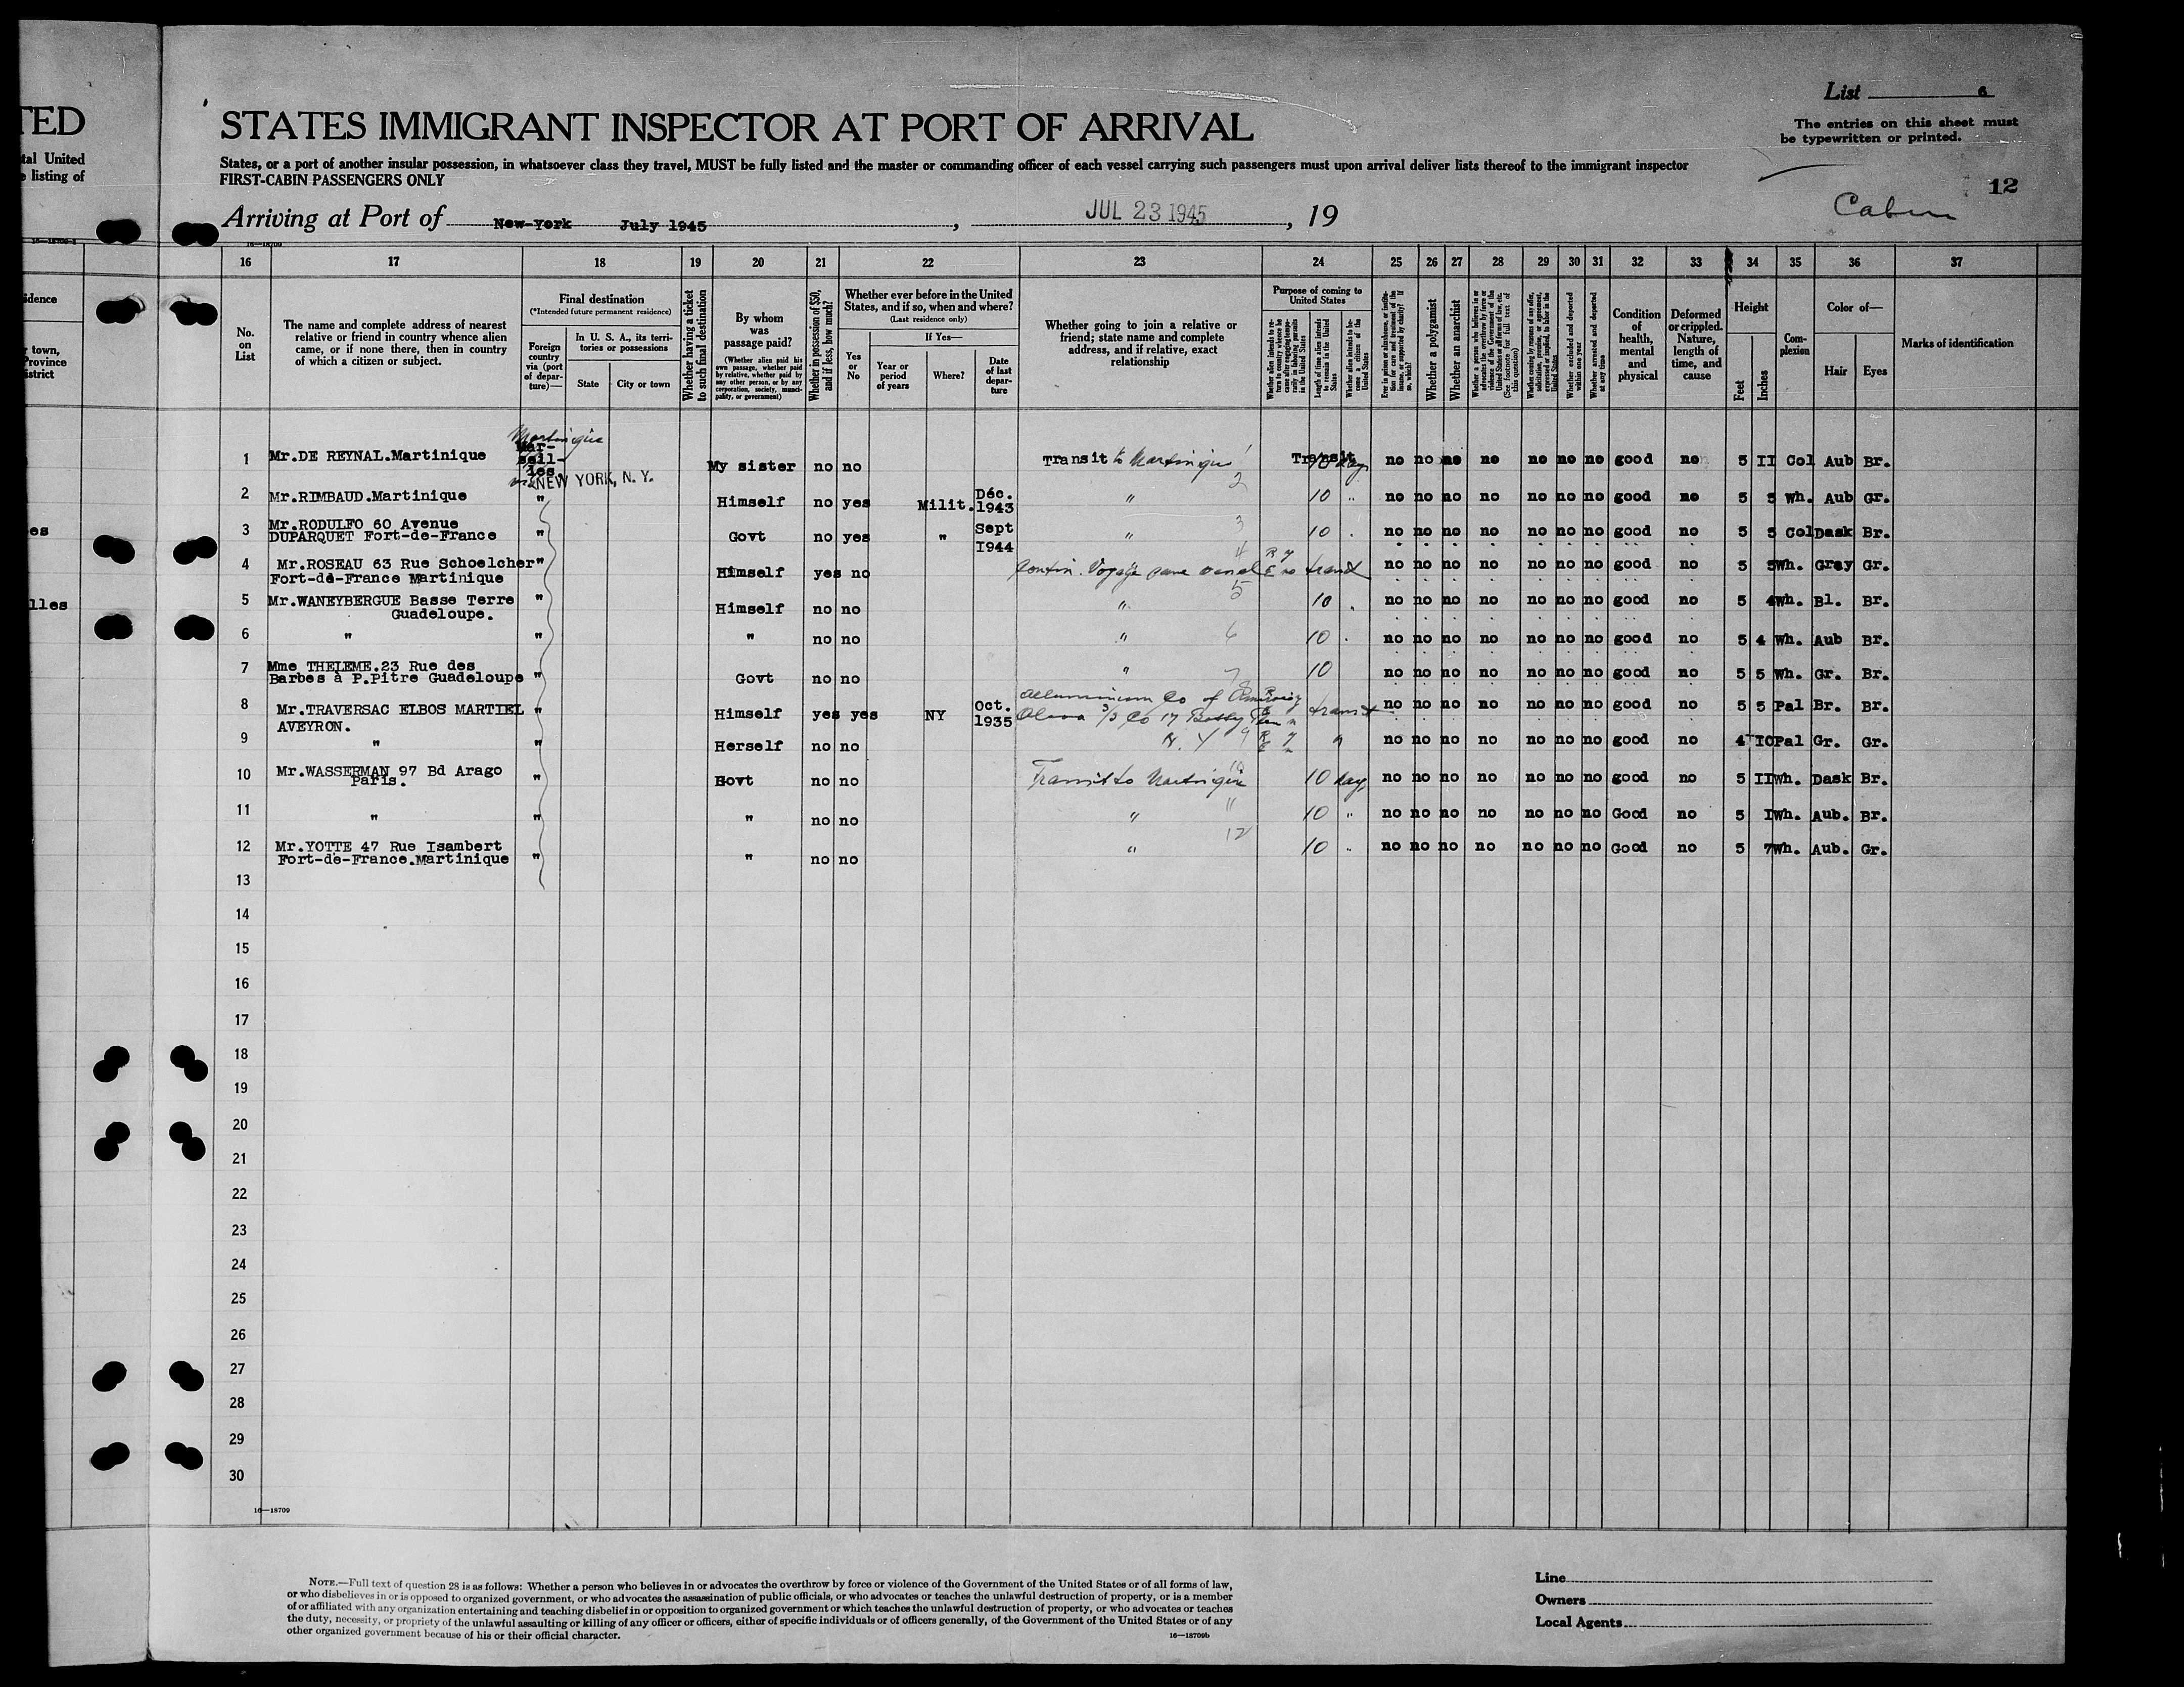 TED
tal United
e listing of
16—18709-1
idence
town,
Province
istrict
es
lles
List 6
The entries on this sheet must
be typewritten or printed.
STATES IMMIGRANT INSPECTOR AT PORT OF ARRIVAL
States, or a port of another insular possession, in whatsoever class they travel, MUST be fully listed and the master or commanding officer of each vessel carrying such passengers must upon arrival deliver lists thereof to the immigrant inspector
FIRST-CABIN PASSENGERS ONLY
12
Cabin
Arriving at Port of New-York July 1945, JUL 23 1945, 19
16—18709
16 17 18 19 20 21 22 23 24 25 26 27 28 29 30 31 32 33 34 35 36 37
No. on List
The name and complete address of nearest relative or friend in country whence alien came, or if none there, then in country of which a citizen or subject.
Final destination
(*Intended future permanent residence)
Foreign country via (port of departure)—
In U. S. A., its territories or possessions
State
City or town
Whether having a ticket to such final destination
By whom was passage paid?
(Whether alien paid his own passage, whether paid by relative, whether paid by any other person, or by any corporation, society, municipality, or government)
Whether in possession of $50, and if less, how much?
Whether ever before in the United States, and if so, when and where?
(Last residence only)
Yes or No
If Yes—
Year or period of years
Where?
Date of last departure
Whether going to join a relative or friend; state name and complete address, and if relative, exact relationship
Purpose of coming to United States
Whether alien intends to return to country whence he came after engaging temporarily in laboring pursuits in the United States
Length of time alien intends to remain in the United States
Whether alien intends to become a citizen of the United States
Ever in prison or almshouse, or institution for care and treatment of the insane, or supported by charity? If so, which?
Whether a polygamist
Whether an anarchist
Whether a person who believes in or advocates the overthrow by force or violence of the Government of the United States or all forms of law, etc. (See footnote for full text of this question)
Whether coming by reasons of any offer, solicitation, promise, or agreement, expressed or implied, to labor in the United States
Whether excluded and deported within one year
Whether arrested and deported at any time
Condition of health, mental and physical
Deformed or crippled. Nature, length of time, and cause
Height
Feet
Inches
Complexion
Color of—
Hair
Eyes
Marks of identification
Martinique
1 Mr.DE REYNAL.Martinique Mar-seil-les. My sister no no Transit to Martinique 1 Transit 10 days no no no no no no no good no 5 II Col Aub Br.
via NEW YORK, N. Y.
2 Mr.RIMBAUD.Martinique " Himself no yes Milit. Déc. 1943 " 2 10 " no no no no no no no good no 5 5 Wh. Aub Gr.
3 Mr.RODULFO 60 Avenue " Govt no yes " Sept I944 " 3 10 . no no no no no no no good no 5 5 Col Dask Br.
DUPARQUET Fort-de-France
4 Mr.ROSEAU 63 Rue Schoelcher " Himself yes no 4 transit no no no no no no no good no 5 5 Wh. Gray Gr.
Fort-de-France Martinique
5 Mr.WANEYBERGUE Basse Terre " Himself no no " 5 10 . no no no no no no no good no 5 4 Wh. Bl. Br.
Guadeloupe.
6 " " " no no " 6 10 . no no no no no no no good no 5 4 Wh. Aub Br.
7 Mme THELEME.23 Rue des " Govt no no " 7 10 no no no no no no no good no 5 5 Wh. Gr. Br.
Barbes à P.Pitre Guadeloupe
8 Mr.TRAVERSAC ELBOS MARTIEL " Himself yes yes NY Oct. 1935 transit no no no no no no no good no 5 5 Pal Br. Br.
AVEYRON.
9 " " Herself no no N. Y 9 " no no no no no no no good no 4 IO Pal Gr. Gr.
10 Mr.WASSERMAN 97 Bd Arago " Govt no no Transit to Martinique 10 10 days no no no no no no no good no 5 II Wh. Dask Br.
Paris.
11 " " " no no " 11 10 " no no no no no no no Good no 5 I Wh. Aub. Br.
12 Mr.YOTTE 47 Rue Isambert " " no no " 12 10 " no no no no no no no Good no 5 7 Wh. Aub. Gr.
Fort-de-France.Martinique
13
14
15
16
17
18
19
20
21
22
23
24
25
26
27
28
29
30
16—18709
NOTE.—Full text of question 28 is as follows: Whether a person who believes in or advocates the overthrow by force or violence of the Government of the United States or of all forms of law,
or who disbelieves in or is opposed to organized government, or who advocates the assassination of public officials, or who advocates or teaches the unlawful destruction of property, or is a member
of or affiliated with any organization entertaining and teaching disbelief in or opposition to organized government or which teaches the unlawful destruction of property, or who advocates or teaches
the duty, necessity, or propriety of the unlawful assaulting or killing of any officer or officers, either of specific individuals or of officers generally, of the Government of the United States or of any
other organized government because of his or their official character.
16—18709b
Line
Owners
Local Agents